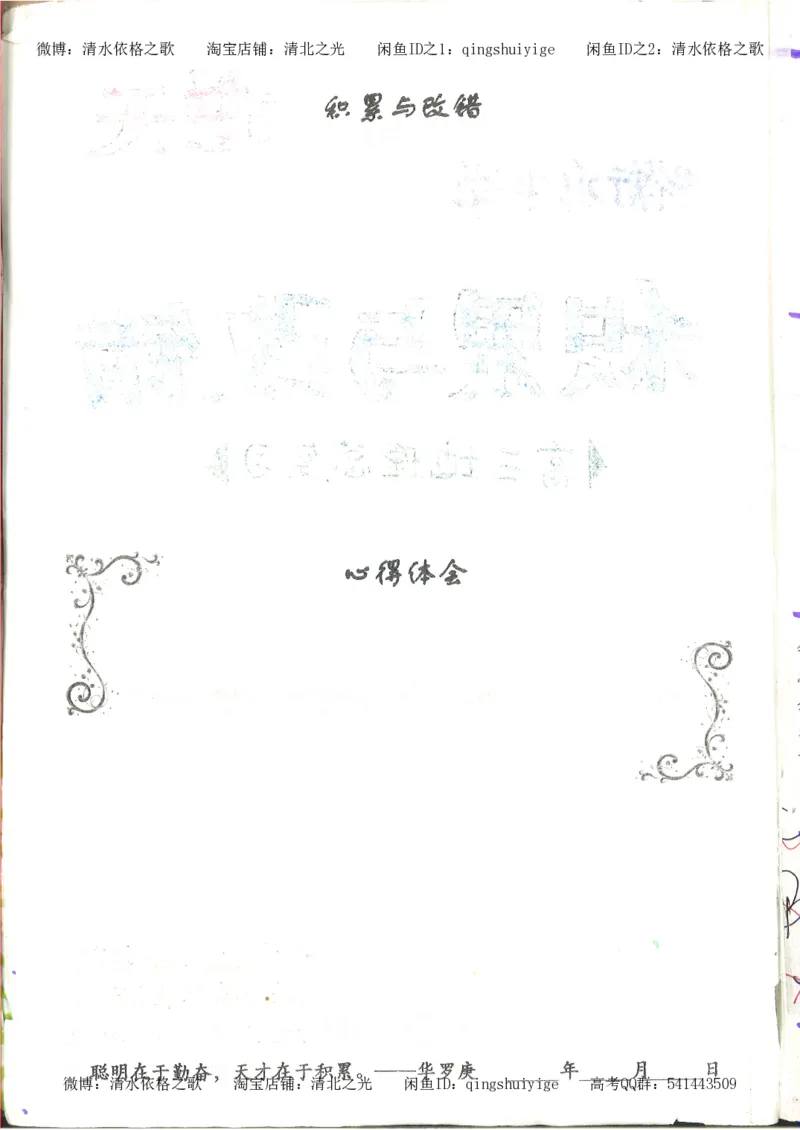 微博：清水依格之歌 淘宝店铺：清北之光 闲鱼ID之1：qingshuiyige 闲鱼ID之2：清水依格之歌
积累与改错
积累与改错
高三地理总复习
心得体会
聪明在于勤奋，天才在于积累。——华罗庚 年 月 日
微博：清水依格之歌 淘宝店铺：清北之光 闲鱼ID：qingshuiyige 高考QQ群：541443509